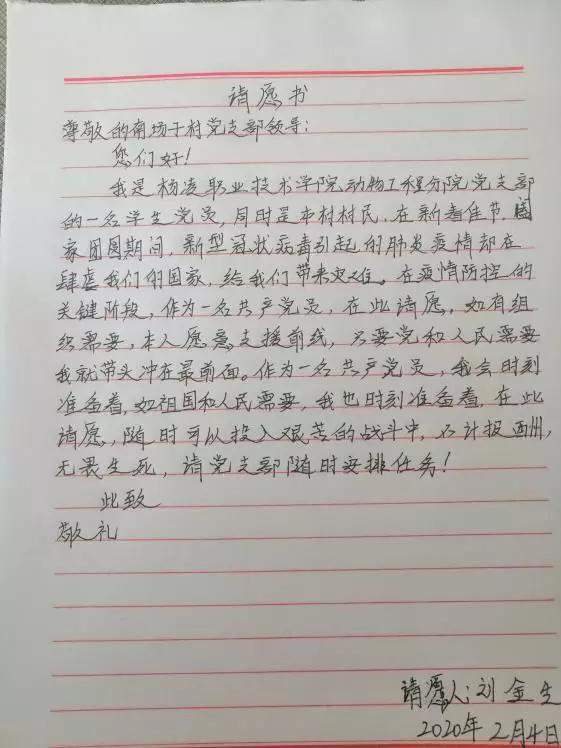 请愿书
尊敬的南场子村党支部领导:
您们好!
我是杨凌职业技术学院动物工程分院党支部
的一名学生党员,同时是本村村民。在新春佳节,阖
家团圆期间,新型冠状病毒引起的肺炎疫情却在
肆虐我们的国家,给我们带来灾难。在疫情防控的
关键阶段,作为一名共产党员,在此请愿,如有组
织需要,本人愿意支援前线,只要党和人民需要
我就带头冲在最前面。作为一名共产党员,我会时刻
准备着,如祖国和人民需要,我也时刻准备着,在此
请愿,随时可以投入艰苦的战斗中,不计报酬,
无畏生死,请党支部随时安排任务!
此致
敬礼
请愿人:刘金生
2020年2月4日